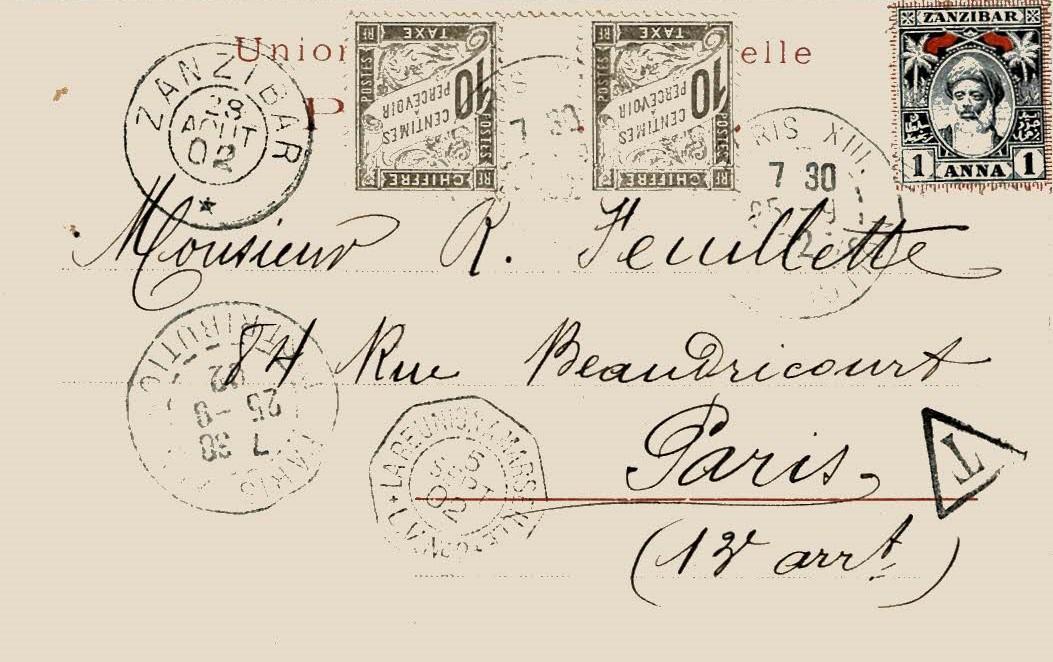 Union elle
P
ZANZIBAR
28
AOUT
02
TAXE
10
CENTIMES
À
PERCEVOIR
POSTES
RF
CHIFFRE
TAXE
10
CENTIMES
À
PERCEVOIR
POSTES
RF
CHIFFRE
7 30
RIS XIII
7 30
25 - 9
ZANZIBAR
1 ANNA 1
Monsieur R. Feuillette
84 Rue Beaudricourt
Paris
(13e arrt)
PARIS DISTRIBUTION
7 30
25 - 9
02
LA REUNION A MARSEILLE
5
SEPT
02
T